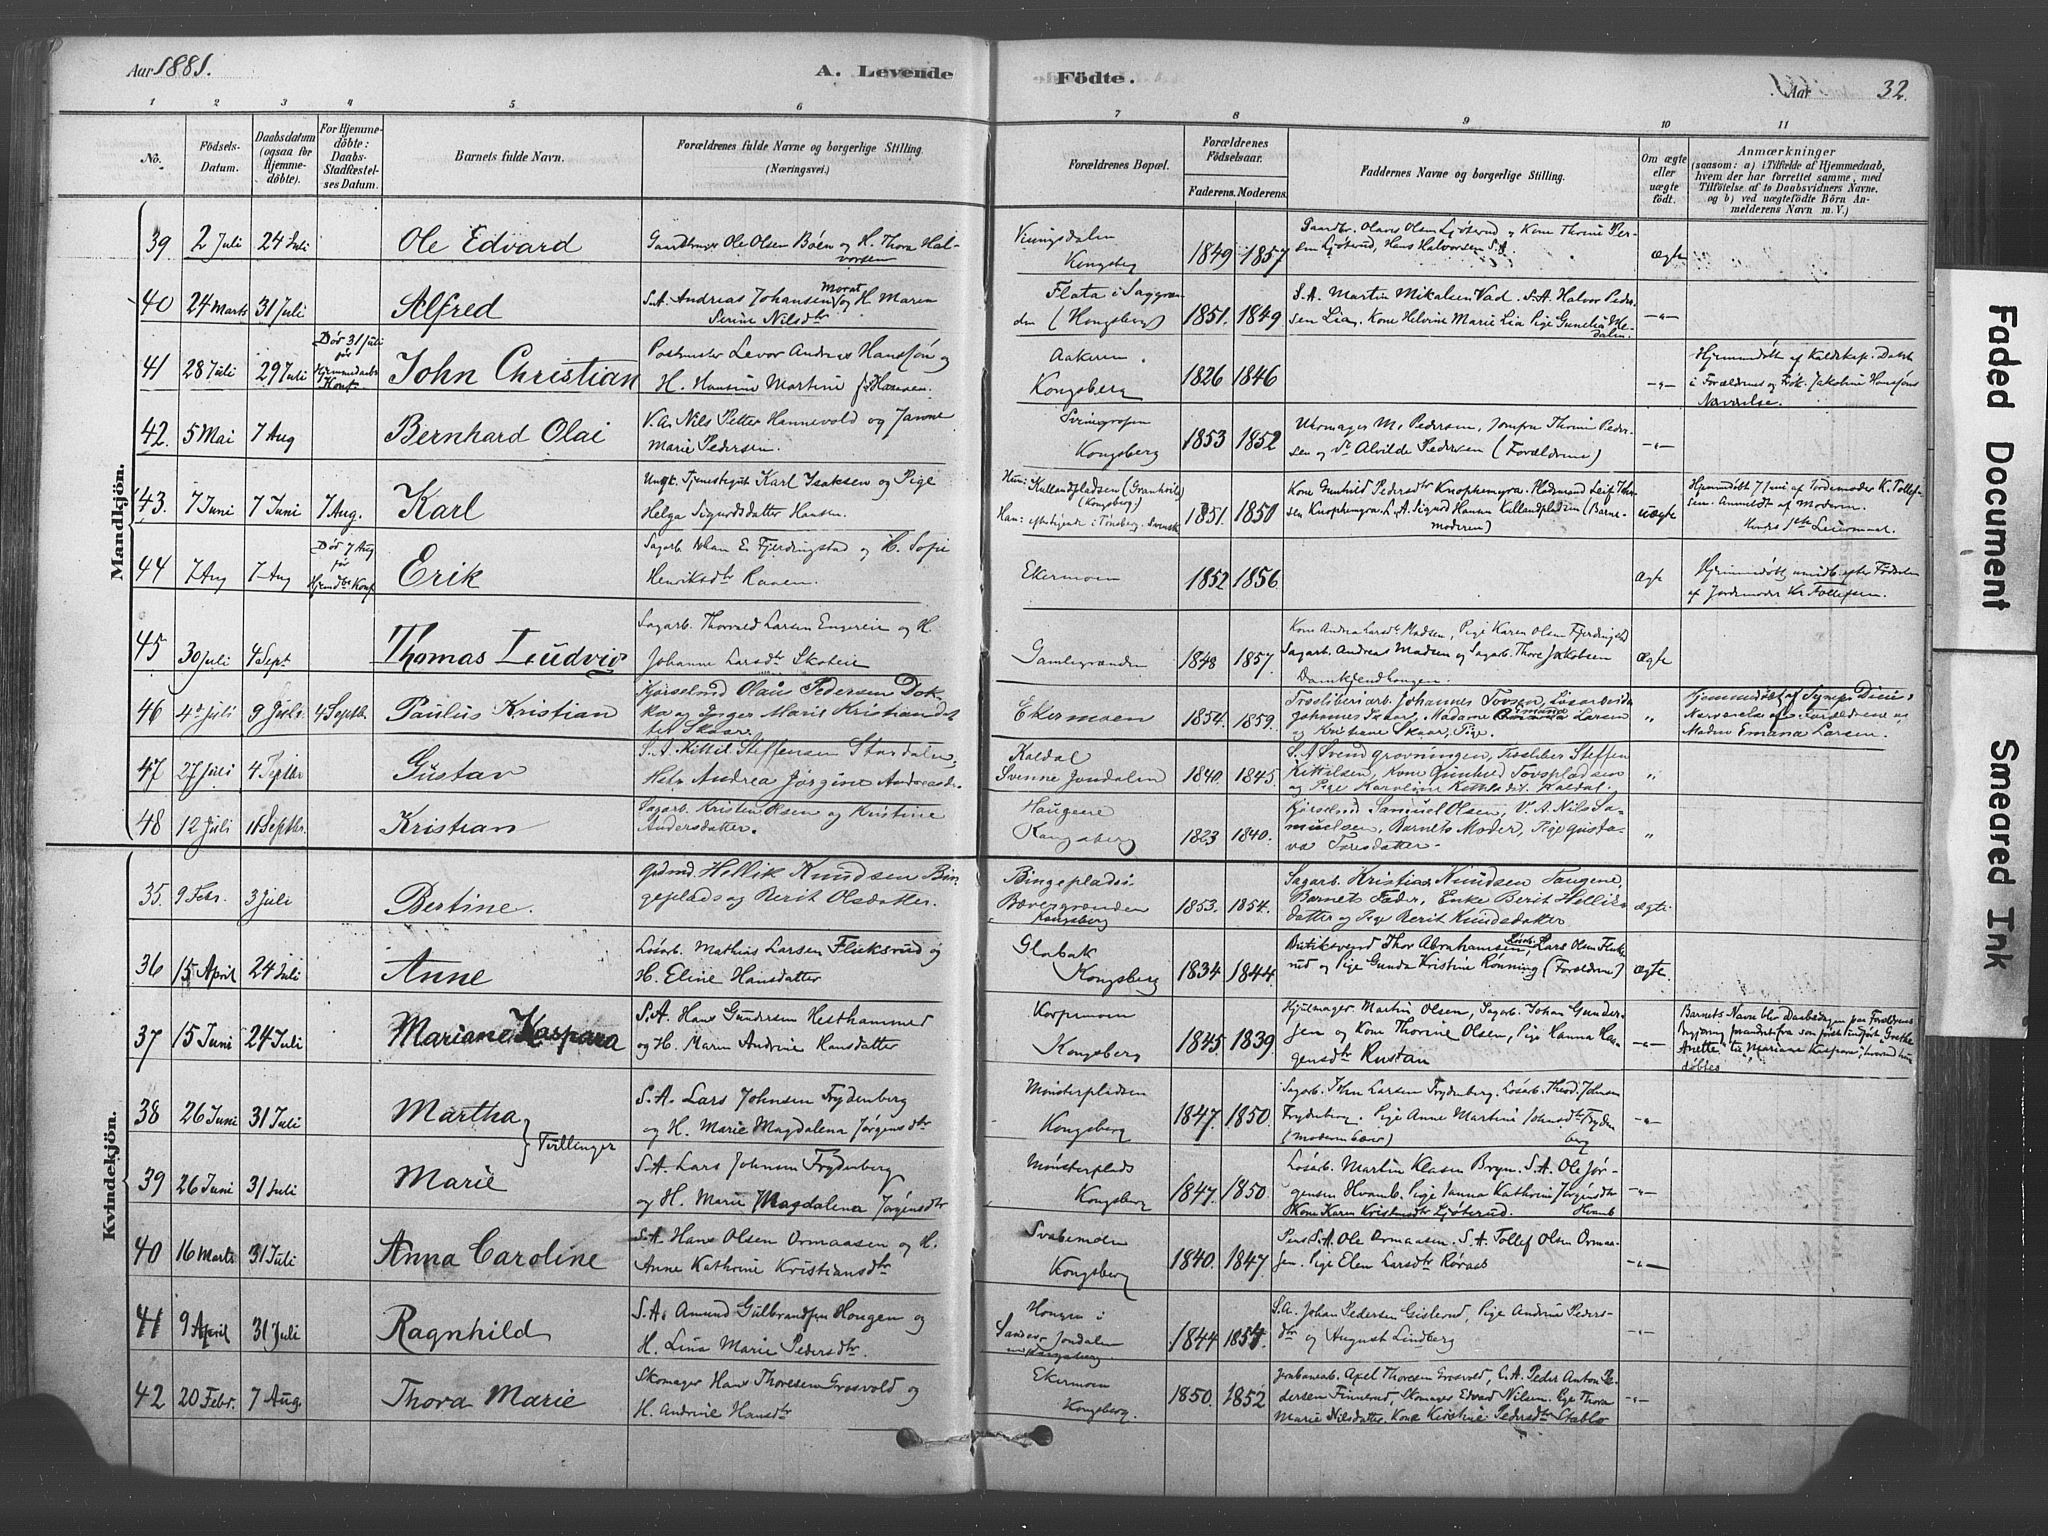 Aar 1881.
A. Levende
Födte.
Aar
32.
1 2 3 4 5 6 7 8 9 10 11
No.
Födsels-
Datum.
Daabsdatum
(ogsaa for
Hjemme-
döbte).
For Hjemme-
döbte:
Daabs-
Stadfæstel-
ses Datum.
Barnets fulde Navn.
Forældrenes fulde Navne og borgerlige Stilling.
(Næringsvei.)
Forældrenes Bopæl.
Forældrenes
Födselsaar.
Faderens. Moderens.
Faddernes Navne og borgerlige Stilling.
Om ægte
eller
uægte
födt.
Anmærkninger
(saasom: a) i Tilfælde af Hjemmedaab,
hvem der har forrettet samme, med
Tilföielse af to Daabsvidners Navne.
og b) ved uægtefödte Börn An-
melderens Navn m. V.)
Mandkjön.
39 2 Juli 24 Juli
Ole Edvard
Ole Olsen Böen og H. Thora Hal-
vorsen
Kongsberg
1849 1857
Gaardbr. Olavs Olsen Ljöterud og Kone Thorine Per-
sen Ljöterud, Hans Halvorsen S.A.
Ægte
40 24 Marts 31 Juli
Alfred
S.A. Andreas Johansen Morat og H. Maren
Serine Nilsdtr
Flata i Saggren-
den (Kongsberg)
1851. 1849
S.A. Martin Mikalsen Vad. S.A. Halvor Peder-
sen Lia, Kone Helvine Marie Lia Pige
-"-
41 28 Juli 29 Juli
Död 31 Juli
för
Hjemmedaabs
Konf.
John Christian
Postmester Levor Andreas Hansson og
H. Hansine Martine f. Hansen.
Kongsberg
1826 1846
-"-
Hjemmedöbt af
i Forældrenes og Frök. Jakobine Hanssons
Nærværelse.
42. 5 Mai 7 Aug
Bernhard Olai
V.A. Nils Petter Hannevold og
Marie Pedersen.
Kongsberg
1853 1852
Uhrmager M. Pedersen, Jomfru Thorine Peder-
sen og do Alvilde Pedersen (Forældrene)
-"-
43. 7 Juni 7 Juni 7 Aug.
Karl
Ungk. Tjenestegut Karl Isaksen og Pige
Helga Sigurdsdatter Hansen.
Hun: Kullandpladsen
(Kongsberg)
Han: i Tönsberg.
1851. 1850
Kone Gunhild Pedersdtr Knophemyra.
sen Knophemyra. S.A. Sigurd Hansen Kullandpladsen (Barne-
moderen)
uægte
Hjemmedöbt 7 Juni af Jordemoder K. Tollef-
sen. Anmeldt af Moderen.
Hendes 1ste Leiermaal.
44 7 Aug 7 Aug
Död 7 Aug
för
Hjemdbs Konf.
Erik
Sagarb. Johan E. Fjerdingstad og H. Sofie
Henriksdtr Raaen.
Ekermoen
1852 1856
Ægte
Hjemmedöbt umidb. efter Födselen
af Jordemoder Kr Tollefsen.
45 30 Juli 4 Sept
Thomas Ludvig
Sagarb. Thorvald Larsen Engereie og H.
Johanne Larsdtr Skoteie
Gamlegrænden
1848 1857
Kone Andrea Larsdtr Madsen, Pige Karen Olsen Fjerdingstad
Sagarb. Andreas Madsen og Sagarb. Thore Jakobsen
Damkjendhougen
Ægte
46 4 Juli 9 Juli 4 Septbr.
Paulus Kristian
Kjörselsmd Olaus Pedersen Dok-
ka og Inger Marie Kristiansdt
Skaar.
Ekermoen
1854. 1859.
Trosliberiarb. Johannes Tovsen, Lösarbeider
Johannes Skaar, Madame Emanda Larsen
og Kristiane Skaar, Pige.
"
Hjemmedöbt af
Nærværelse af Forældrene og
Madme Emana Larsen.
47 27 Juli 4 Septbr
Gustav
S.A. Kittil Steffensen Stordalen,
Hstr Andrea Jörgine Andreasdtr.
Kaldal
Svenne Jondalen
1840 1845
Kittilsen, Kone Gunhild Tovspladsen
og Pige Karoline Kittilsdtr. Kaldal.
"
48 12 Juli 11 Septbr.
Kristian
Sagarb. Kristen Olsen og Kristine
Andersdatter.
Haugene
Kongsberg
1823 1840.
Kjörselsmd Samuel Olsen, V.A. Nils Sa-
muelsen, Barnets Moder, Pige Gusta-
va Toresdatter.
"
Kvindekjön.
35. 9 Febr. 3 Juli
Bertine.
Gdmd. Hellik Knudsen Bin-
geplads og Berit Olsdatter.
Bingeplads i
Bævergrænden
Kongsberg
1853. 1854.
Sagarb. Kristian Knudsen Taugene,
Barnets Fader, Enke Berit Hellik-
datter og Pige Berit Knudsdatter
ægte
36 15 April 24 Juli
Anne
Lösarb. Mathias Larsen Fliksrud og
H. Eline Hansdatter
Glabak
Kongsberg
1834 1844
Butiksvend Thor Abrahamsen, Lösarb. Lars Olsen Fliks-
rud og Pige Gunda Kristine Rönning (Forældrene)
Ægte
37 15 Juni 24 Juli
Mariane Kaspara
S.A. Hans Gundersen Hesthammer
og H. Maren Andrine Hansdatter
Korpemoen
Kongsberg
1845. 1839.
Hjulmager Martin Olsen, Sagarb. Johan Gunder-
sen og Kone Thorine Olsen, Pige Hanna Ha-
gensdtr Rustan
-"-
Barnets Navn blev Daabsdagen paa Forældrenes
Begjæring forandret fra som först indfört "Grethe
Anette" til "Mariane Kaspara", hvormed hun
döbtes
38 26 Juni 31 Juli
Martha
} Tvillinger
S.A. Lars Johnsen Frydenberg
og H. Marie Magdalena Jörgensdtr
Mönsterpladsen
Kongsberg
1847. 1850.
Sagarb. John Larsen Frydenberg, Lösarb. Theod. Johnsen
Frydenberg, Pige Anne Martine Johnsdtr Fryden-
berg
-"-
39 26 Juni 31 Juli
Marie
S.A. Lars Johnsen Frydenberg
og H. Marie Magdalena Jörgensdtr
Mönsterplads
Kongsberg
1847. 1850
Lösarb. Martin Klasen Bryn. S.A. Ole Jör-
gensen Hvamb. Pige Janna Kathrine Jörgensdtr
Hvamb
Kone Karen Kristensdtr Ljöterud.
-"-
40 16 Marts 31 Juli
Anna Caroline
S.A. Hans Olsen Ormaasen og H.
Anne Kathrine Kristiansdtr
Svabemoen
Kongsberg
1840. 1847.
Pens. S.A. Ole Ormaasen. S.A. Tollef Olsen Ormaa-
sen. Pige Elen Larsdtr Röraas
-"-
41 9 April 31 Juli
Ragnhild
S.A. Amund Gulbrandsen Hougen og
H. Lina Marie Pedersdtr.
Hougen i
Jondalen
Kongsberg.
1844 1854
S.A. Johan Pedersen Gislerud, Pige Andrine Peders-
dtr og August Lindberg
-"-
42 20 Febr. 7 Aug.
Thora Marie
Skomager Hans Thoresen Grosvold og
H. Andrine Hansdtr
Ekermoen
Kongsberg.
1850. 1852
Jernbanearb. Axel Thoresen Grosvold, S.A. Peder Anton Pe-
dersen Finnerud, Skomager Edvard Nilsen. Pige Thora
Marie Nilsdatter. Kone Kirstine Pedersdtr Stablo
-"-
Faded Document
Smeared Ink